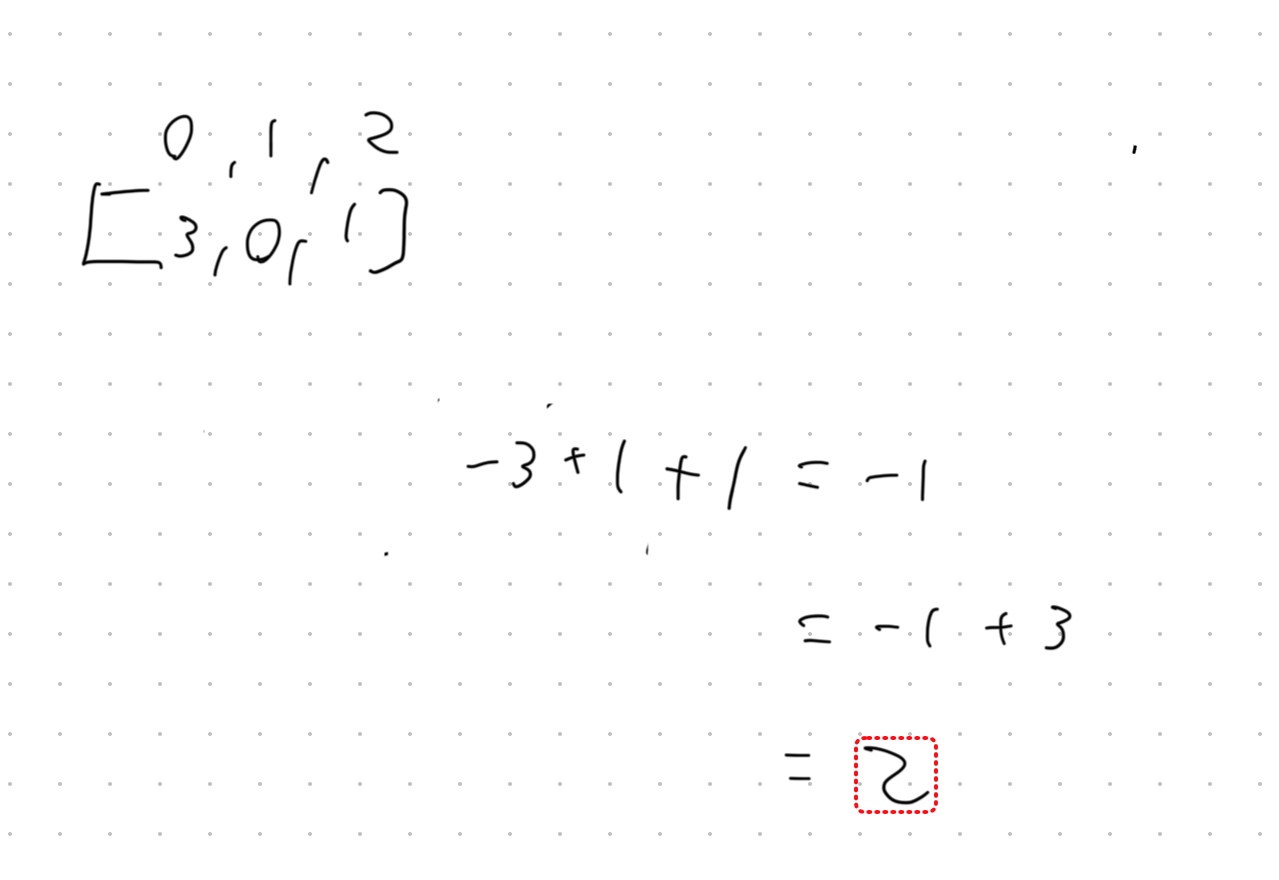 0, 1, 2
[3, 0, 1]
-3 + 1 + 1 = -1
= -1 + 3
= 2